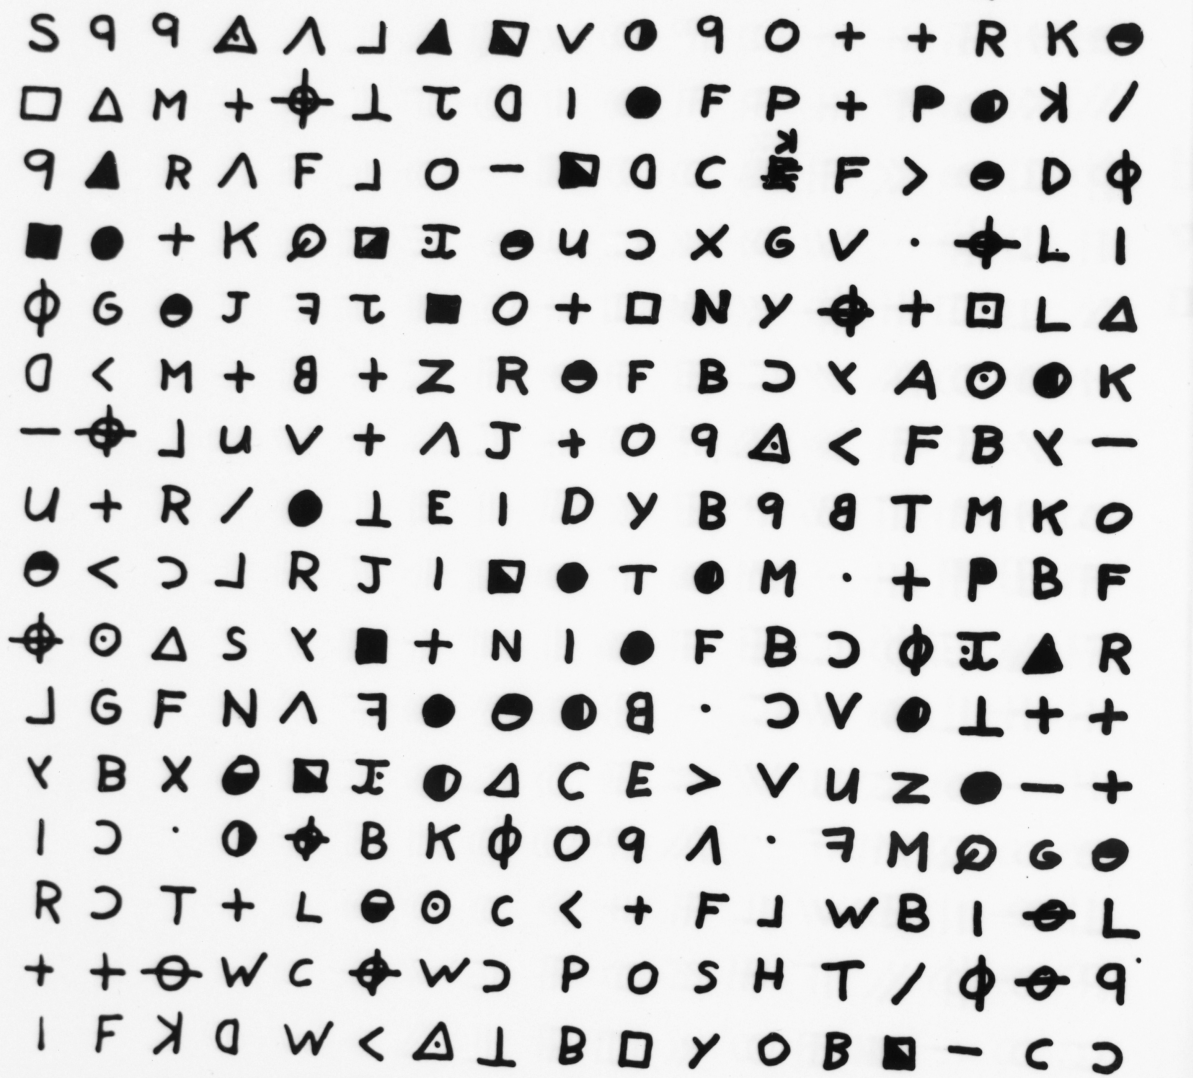 S q q ◬ Λ ⅃ ▲ ⬕ V ◑ q O + + R K ⊖
□ Δ M + ⌖ ⊥ Ʈ ᗡ I ● F P + P ◑ ꓘ /
q ▲ R Λ F ⅃ O − ⬔ ᗡ C ꓘ F > ⊖ D ϕ
■ ● + K ⍉ ◪ I ⊖ U Ɔ X G V · ⌖ L I
ϕ G ⊖ J ꟻ Ʈ ■ O + □ N Y ⌖ + ⊡ L Δ
ᗡ < M + ᗺ + Z R ⊖ F B Ɔ ⅄ A ⊙ ◑ K
− ⌖ ⅃ U V + Λ J + O q ◬ < F B ⅄ −
U + R / ● ⊥ E I D Y B q ᗺ T M K O
⊖ < Ɔ ⅃ R J I ⬕ ● T ◑ M · + P B F
⌖ ⊙ Δ S ⅄ ■ + N I ● F B Ɔ ϕ I ▲ R
⅃ G F N Λ ꟻ ● ⊖ ◑ ᗺ · Ɔ V ◑ ⊥ + +
⅄ B X ⊖ ⬕ I ◑ Δ C E > V U Z ● − +
I Ɔ · ◑ ⌖ B K ϕ O q Λ · ꟻ M ⍉ G ⊖
R Ɔ T + L ⊖ ⊙ C < + F ⅃ W B I ⊖ L
+ + ⊖ W C ⌖ W Ɔ P O S H T / ϕ ⊖ q
I F ꓘ ᗡ W < ◬ ⊥ B □ Y O B ⬕ − C Ɔ